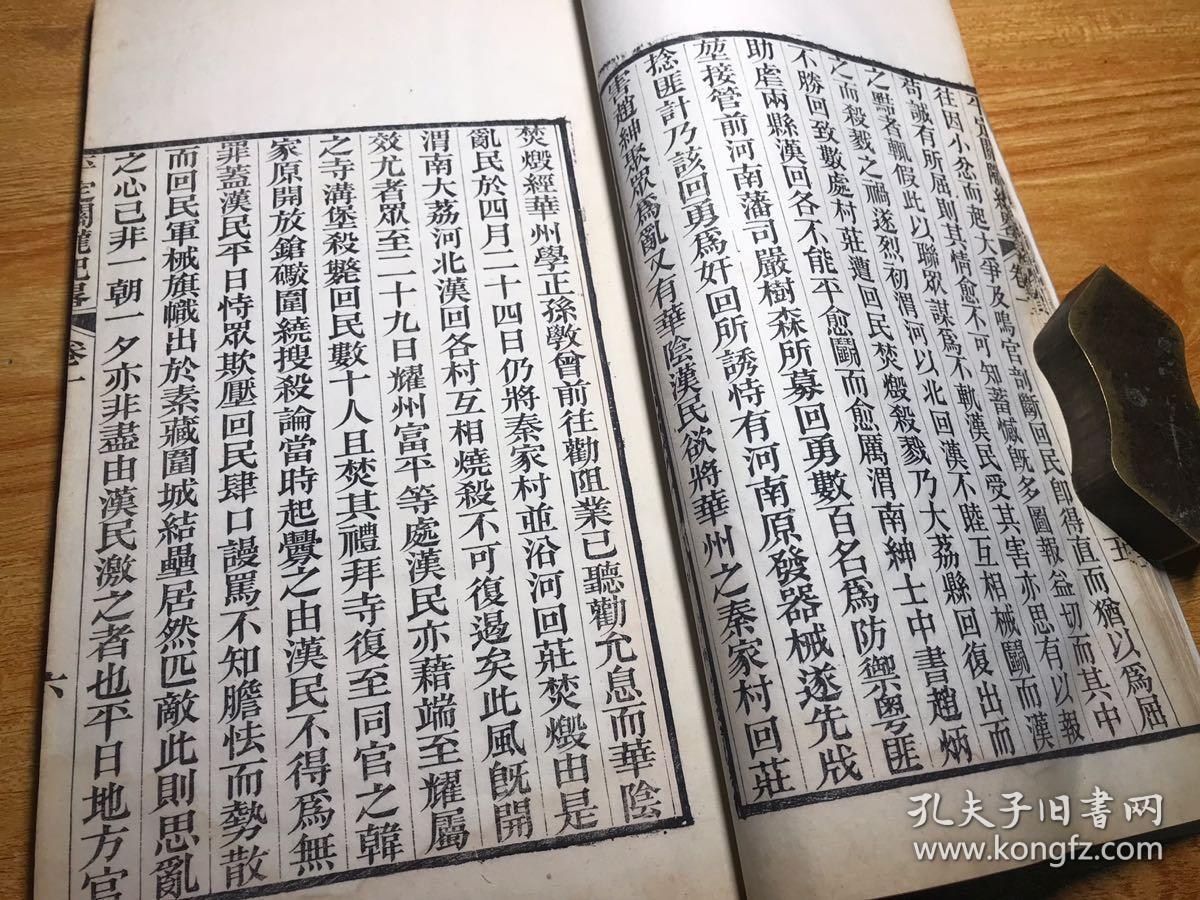 平定關隴紀畧 卷一 五
往因小忿而起大爭及鳴官剖斷回民卽得直而猶以爲屈
苟誠有所屈則其情愈不可知蓄憾旣多圖報益切而其中
之黠者輒假此以聯眾謀爲不軌漢民受其害亦思有以報
之而殺戮之禍遂烈初渭河以北回漢不睦互相械鬭而漢
不勝回致數處村莊遭回民焚燬殺戮乃大荔縣回復出而
助虐兩縣漢回各不能平愈鬭而愈厲渭南紳士中書趙炳
堃接管前河南藩司嚴樹森所募回勇數百名爲防禦粵匪
捻匪計乃該回勇爲奸回所誘恃有河南原發器械遂先戕
害趙紳聚眾爲亂又有華陰漢民欲將華州之秦家村回莊
焚燬經華州學正孫斆曾前往勸阻業已聽勸允息而華陰
亂民於四月二十四日仍將秦家村並沿河回莊焚燬由是
渭南大荔河北漢回各村互相燒殺不可復遏矣此風旣開
效尤者眾至二十九日耀州富平等處漢民亦藉端至耀屬
之寺溝堡殺斃回民數十人且焚其禮拜寺復至同官之韓
家原開放鎗礮圍繞搜殺論當時起釁之由漢民不得爲無
罪蓋漢民平日恃眾欺壓回民肆口謾罵不知膽怯而勢散
而回民軍械旗幟出於素藏圍城結壘居然匹敵此則思亂
之心已非一朝一夕亦非盡由漢民激之者也平日地方官
平定關隴紀畧 卷一 六
孔夫子旧书网
www.kongfz.com